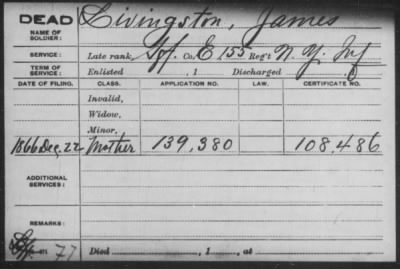 DEAD
NAME OF SOLDIER: Livingston, James
SERVICE: Late rank, Co. E 155 Reg't N. Y. Inf
TERM OF SERVICE: Enlisted , 1 Discharged
DATE OF FILING. CLASS. APPLICATION NO. CERTIFICATE NO.
Invalid,
Widow,
Minor,
1866 Dec. 22 Mother 139,380 108,486
ADDITIONAL SERVICES:
REMARKS:
77 Died , 1 , at